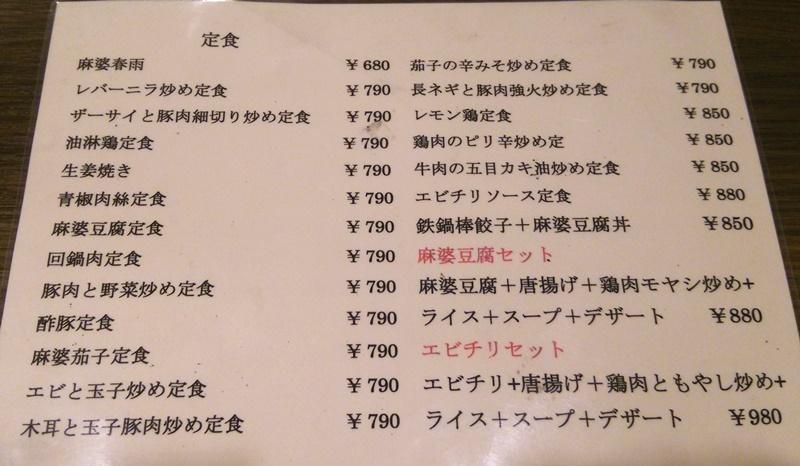 定食
麻婆春雨 ￥680
レバーニラ炒め定食 ￥790
ザーサイと豚肉細切り炒め定食 ￥790
油淋鶏定食 ￥790
生姜焼き ￥790
青椒肉絲定食 ￥790
麻婆豆腐定食 ￥790
回鍋肉定食 ￥790
豚肉と野菜炒め定食 ￥790
酢豚定食 ￥790
麻婆茄子定食 ￥790
エビと玉子炒め定食 ￥790
木耳と玉子豚肉炒め定食 ￥790
茄子の辛みそ炒め定食 ￥790
長ネギと豚肉強火炒め定食 ￥790
レモン鶏定食 ￥850
鶏肉のピリ辛炒め定 ￥850
牛肉の五目カキ油炒め定食 ￥850
エビチリソース定食 ￥880
鉄鍋棒餃子＋麻婆豆腐丼 ￥850
麻婆豆腐セット
麻婆豆腐＋唐揚げ＋鶏肉モヤシ炒め+
ライス＋スープ＋デザート ￥880
エビチリセット
エビチリ+唐揚げ＋鶏肉ともやし炒め+
ライス＋スープ＋デザート ￥980